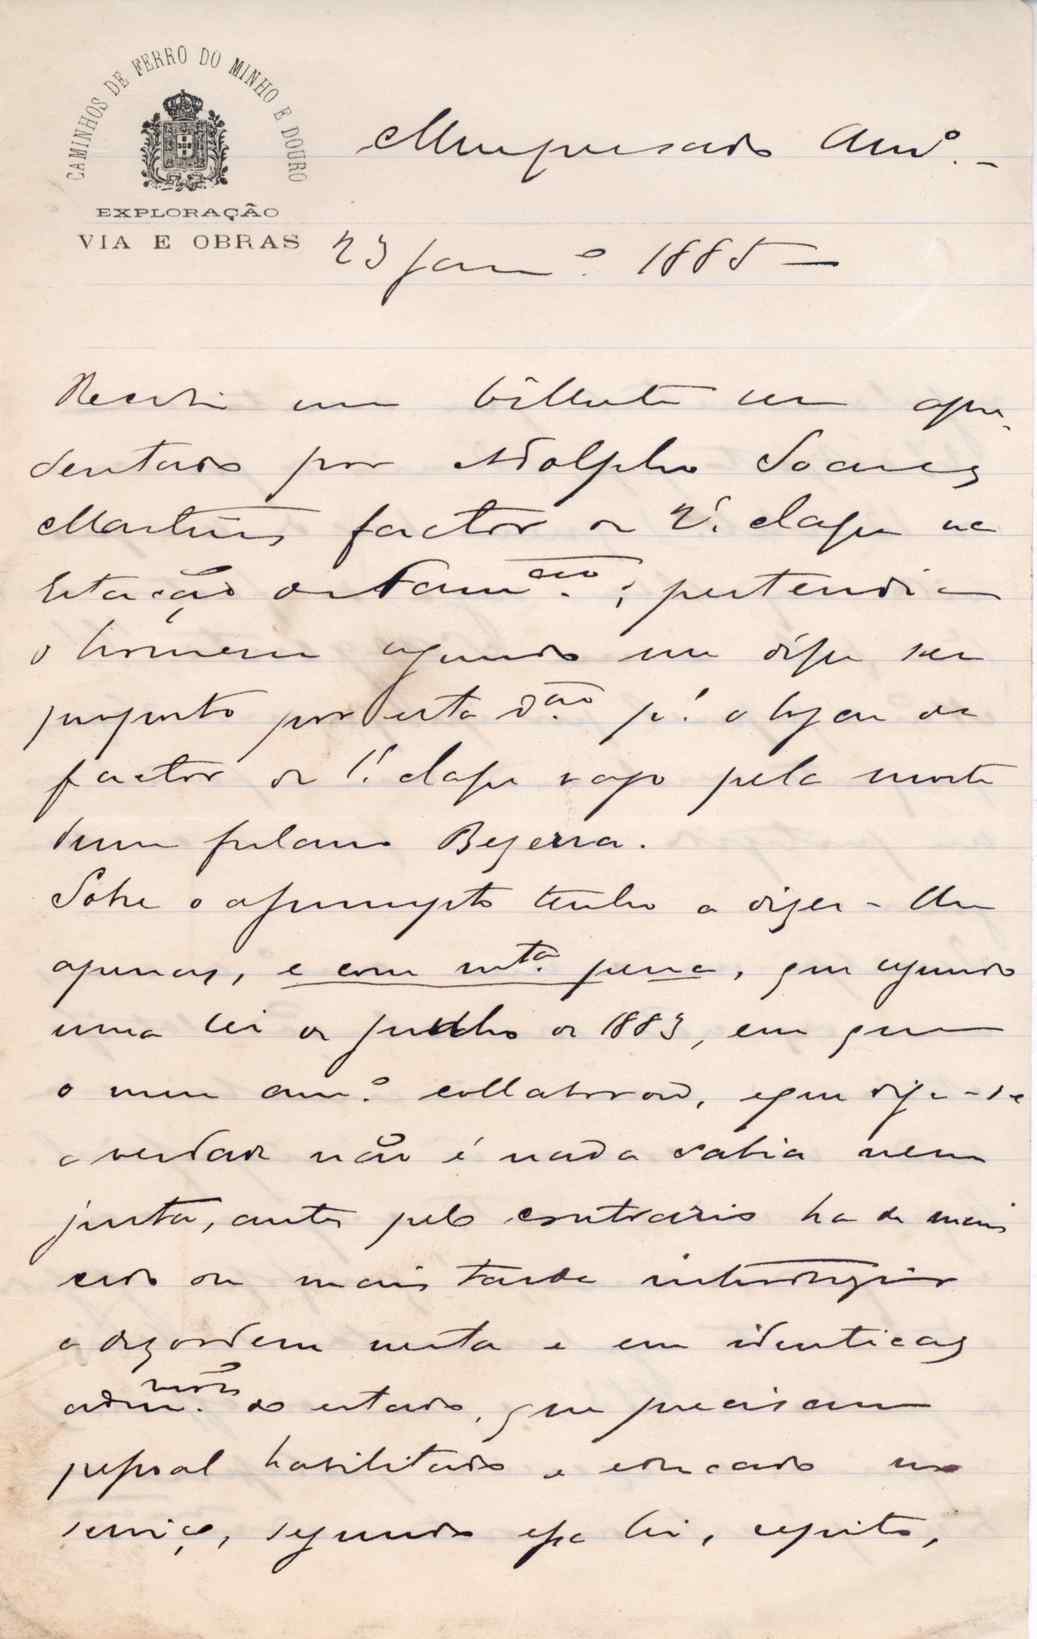 CAMINHOS DE FERRO DO MINHO E DOURO
EXPLORAÇÃO
VIA E OBRAS
Meu presado Amº. -
23 Janº. 1885 -
Recebi um bilhete seu apre-
sentado por Adolpho Soares
Martins factor de 2ª. classe na
Estação de Famcão.; pertendia
o homem segundo me disse ser
proposto por esta Dcão pª. o logar de
factor de 1ª. classe vago pela morte
dum fulano Bezerra.
Sobre o assumpto tenho a dizer-lhe
apenas, e com mta. pena, que segundo
uma lei de Junho de 1883, em que
o meu amº. collaborou, e que diga-se
a verdade não é nada sabia nem
justa, antes pelo contrario ha de mais
cedo ou mais tarde introduzir
a dezordem nesta e em identicas
admnões. do estado, que precisam
pessoal habilitado e educado no
serviço, segundo essa lei, repito,